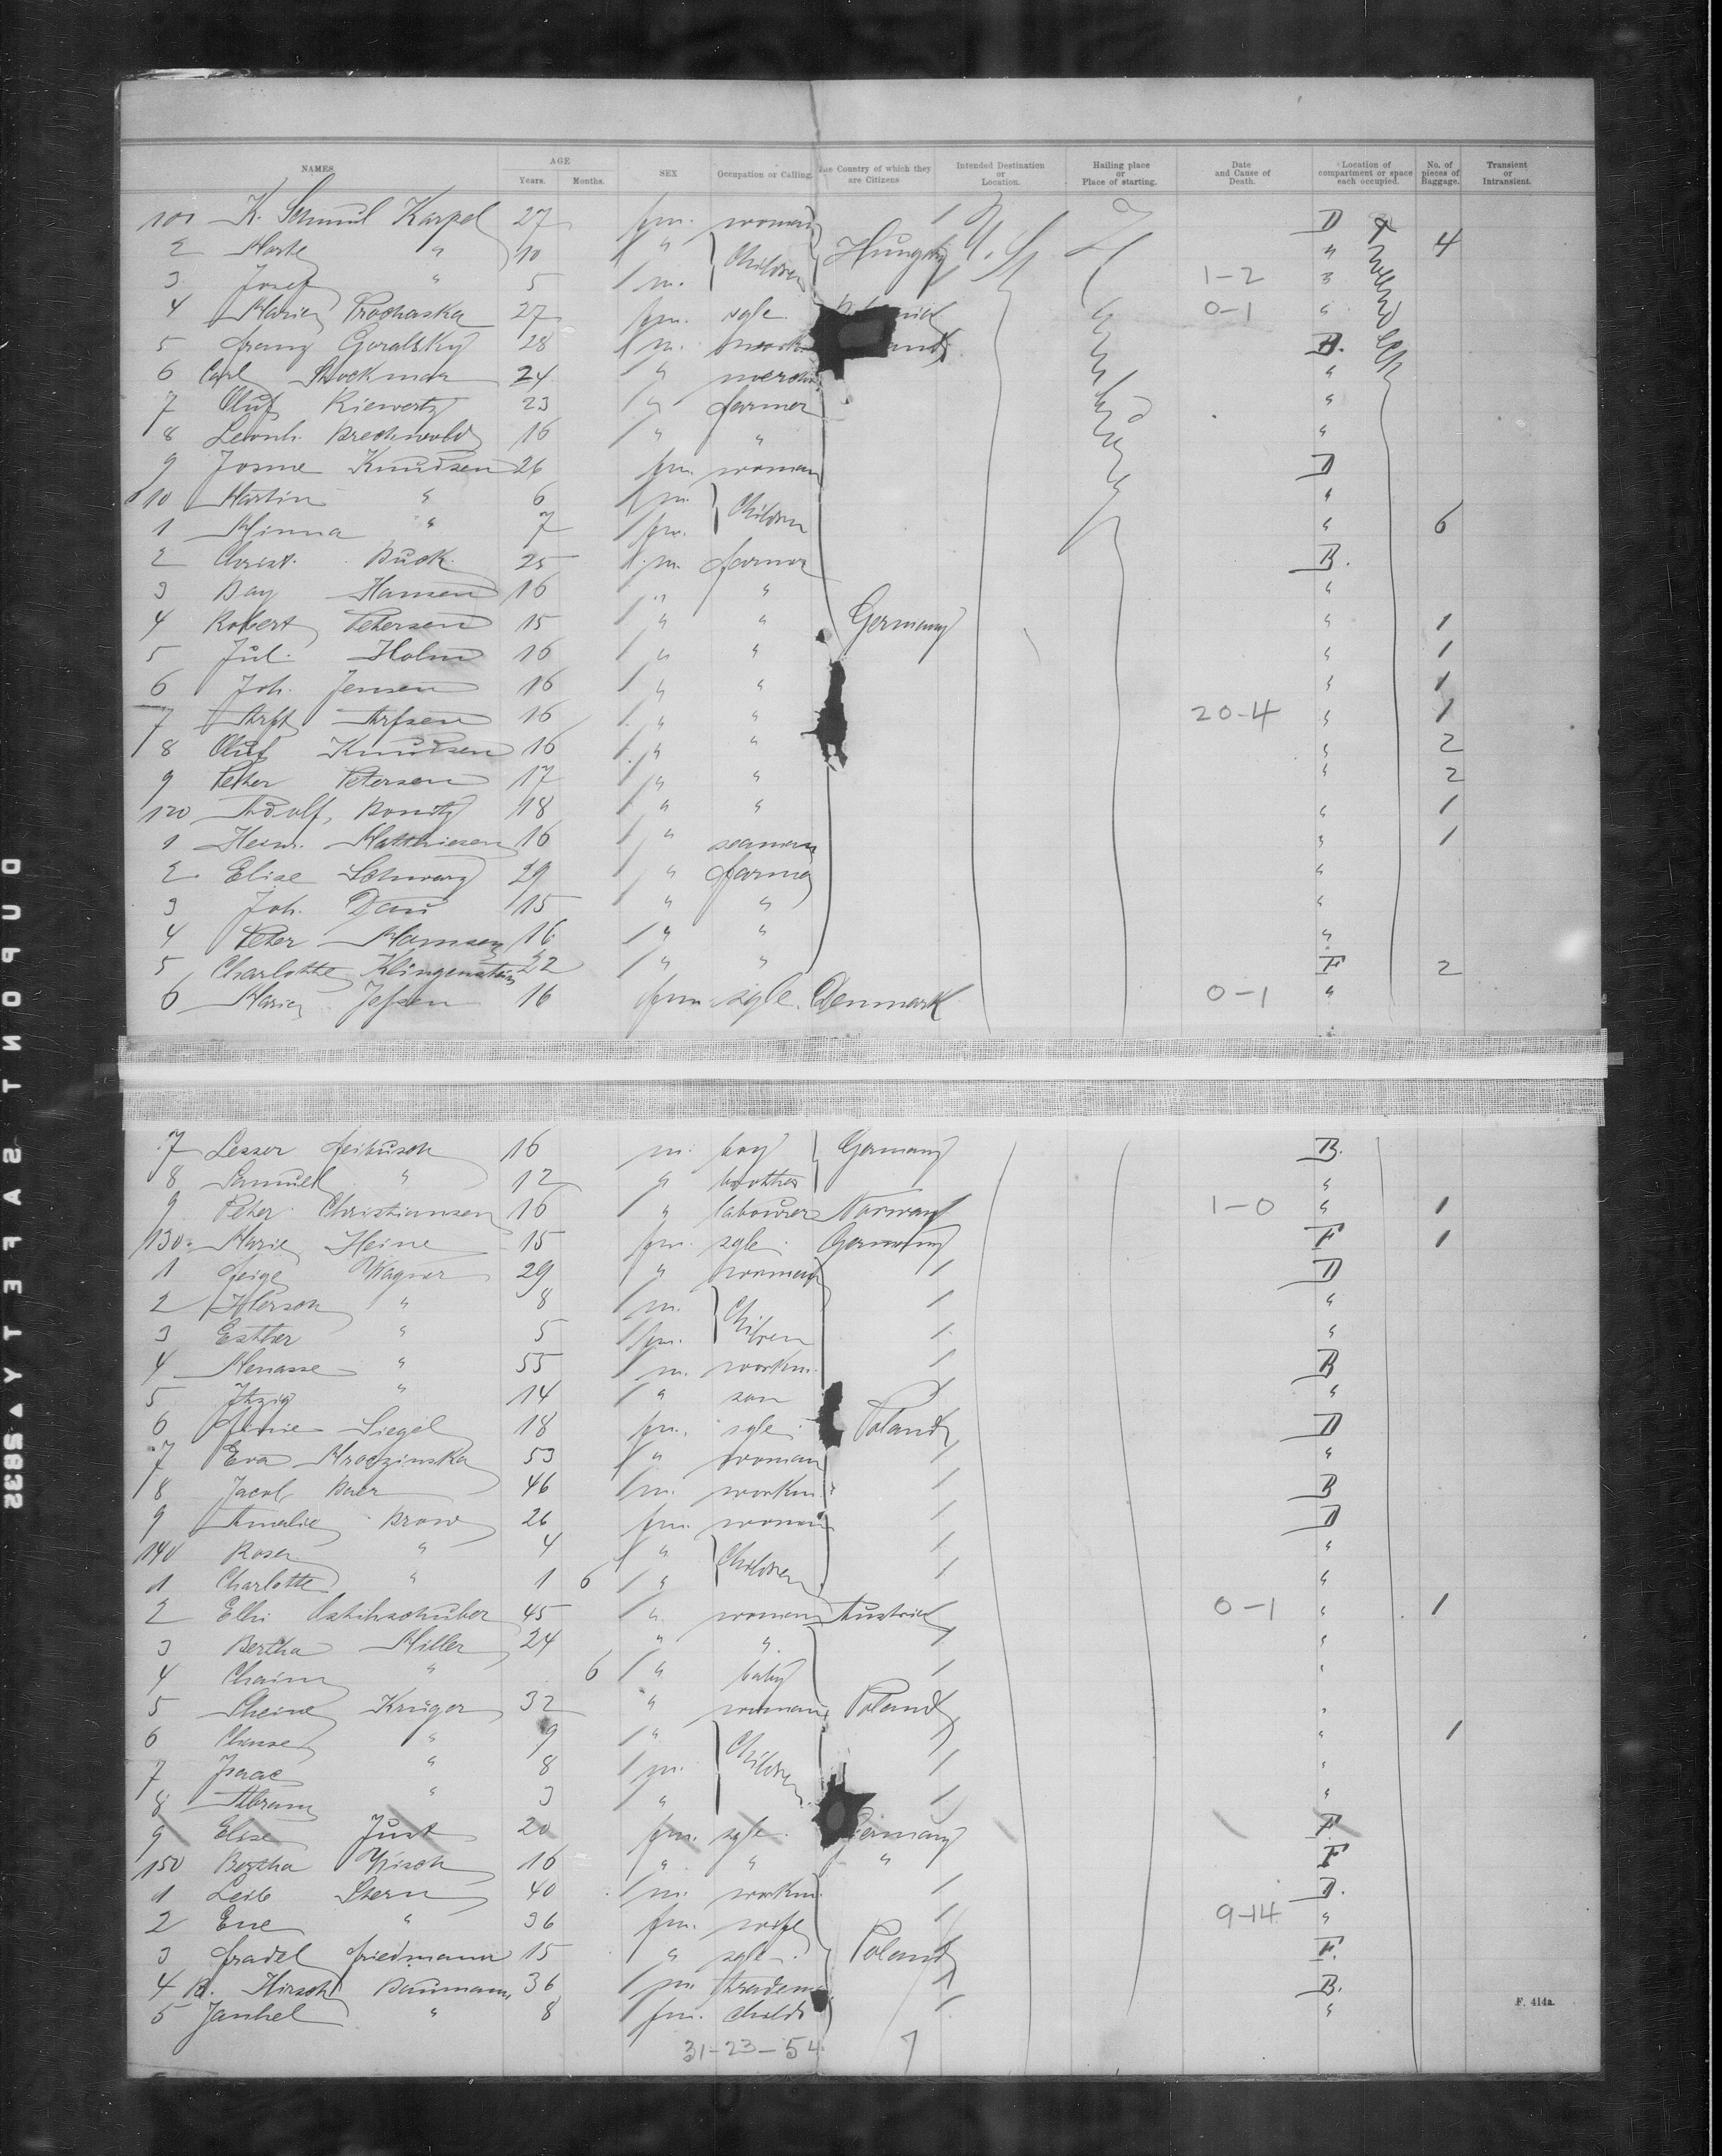 NAMES. AGE Years. Months. SEX Occupation or Calling. Country of which they are Citizens Intended Destination or Location. Hailing place or Place of starting. Date and Cause of Death. Location of compartment or space each occupied. No. of pieces of Baggage. Transient or Intransient.
101 K. Schmul Karpel 27 fm. woman D
2 " 10 " Children Hungary U. S. " 4
3 Josef " 5 m. 1-2 "
4 Marie Prochaska 27 fm. sgle. 0-1 "
5 Franz Goralsky 28 m. B.
6 Carl Stockmar 24 "
7 Oluf Riewertz 23 " farmer "
8 Leonh. Brechwold 16 " " "
9 Knudsen 26 fm. woman D
110 Martin " 6 m. Children "
1 Minna " 7 fm. " 6
2 Christ. Buck 25 m. farmer B.
3 Bay Hansen 16 " " "
4 Robert Petersen 15 " " Germany " 1
5 Jul. Holm 16 " " " 1
6 Joh. Jensen 16 " " " 1
7 Arfst Arfsen 16 " " 20-4 " 1
8 Oluf Knudsen 16 " " " 2
9 Peter Petersen 17 " " " 2
120 Adolf Bonitz 18 " " " 1
1 Heinr. Matthiesen 16 " seaman " 1
2 Elise Schwarz 29 " farmer "
3 Joh. Dau 15 " " "
4 Peter Mamsen 16 " " "
5 Charlotte Klingenstein 22 " " F 2
6 Marie Jepsen 16 fm sgle. Denmark 0-1 "
7 Lesser Feibusch 16 m. boy Germany B.
8 Samuel " 12 " brother "
9 Peter Christiansen 16 " labourer Norway 1-0 " 1
130 Marie Heine 15 fm. sgle. Germany F 1
1 Feige Wagner 29 " woman D
2 Herson " 8 m. Children "
3 Esther " 5 fm. "
4 Menasse " 55 m. workm. B
5 Itzig " 14 " son "
6 Siegel 18 fm. sgle. Poland D
7 Eva Mroczinska 53 " woman "
8 Jacob Baer 46 m. workm. B
9 Amalie Brow 26 fm. woman D
140 Rosa " 4 " Children "
1 Charlotte " 1 6 " "
2 Elki 45 " woman Austria 0-1 " 1
3 Bertha Miller 24 " " "
4 Chaim " 6 " baby "
5 Krüger 32 " woman Poland "
6 " 9 " Children " 1
7 Isaac " 8 m. "
8 Abram " 3 " "
9 Elise Just 20 fm. sgle. Germany F.
150 Bertha 16 " " " F
1 Leib Stern 40 m. workm. D.
2 Ene " 36 fm. wife 9-14 "
3 Fradel Friedmann 15 " sgle. Poland F.
4 B. Hirsch Baumann 36 m. B.
5 Jankel " 8 fm. child "
31-23-54 7
F. 414a.
DUPONT SAFETY 2835